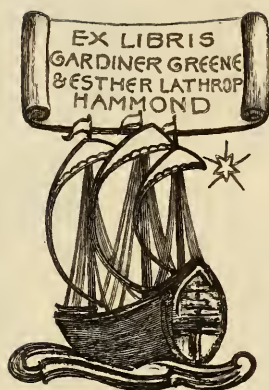 EX LIBRIS
GARDINER GREENE
& ESTHER LATHROP
HAMMOND